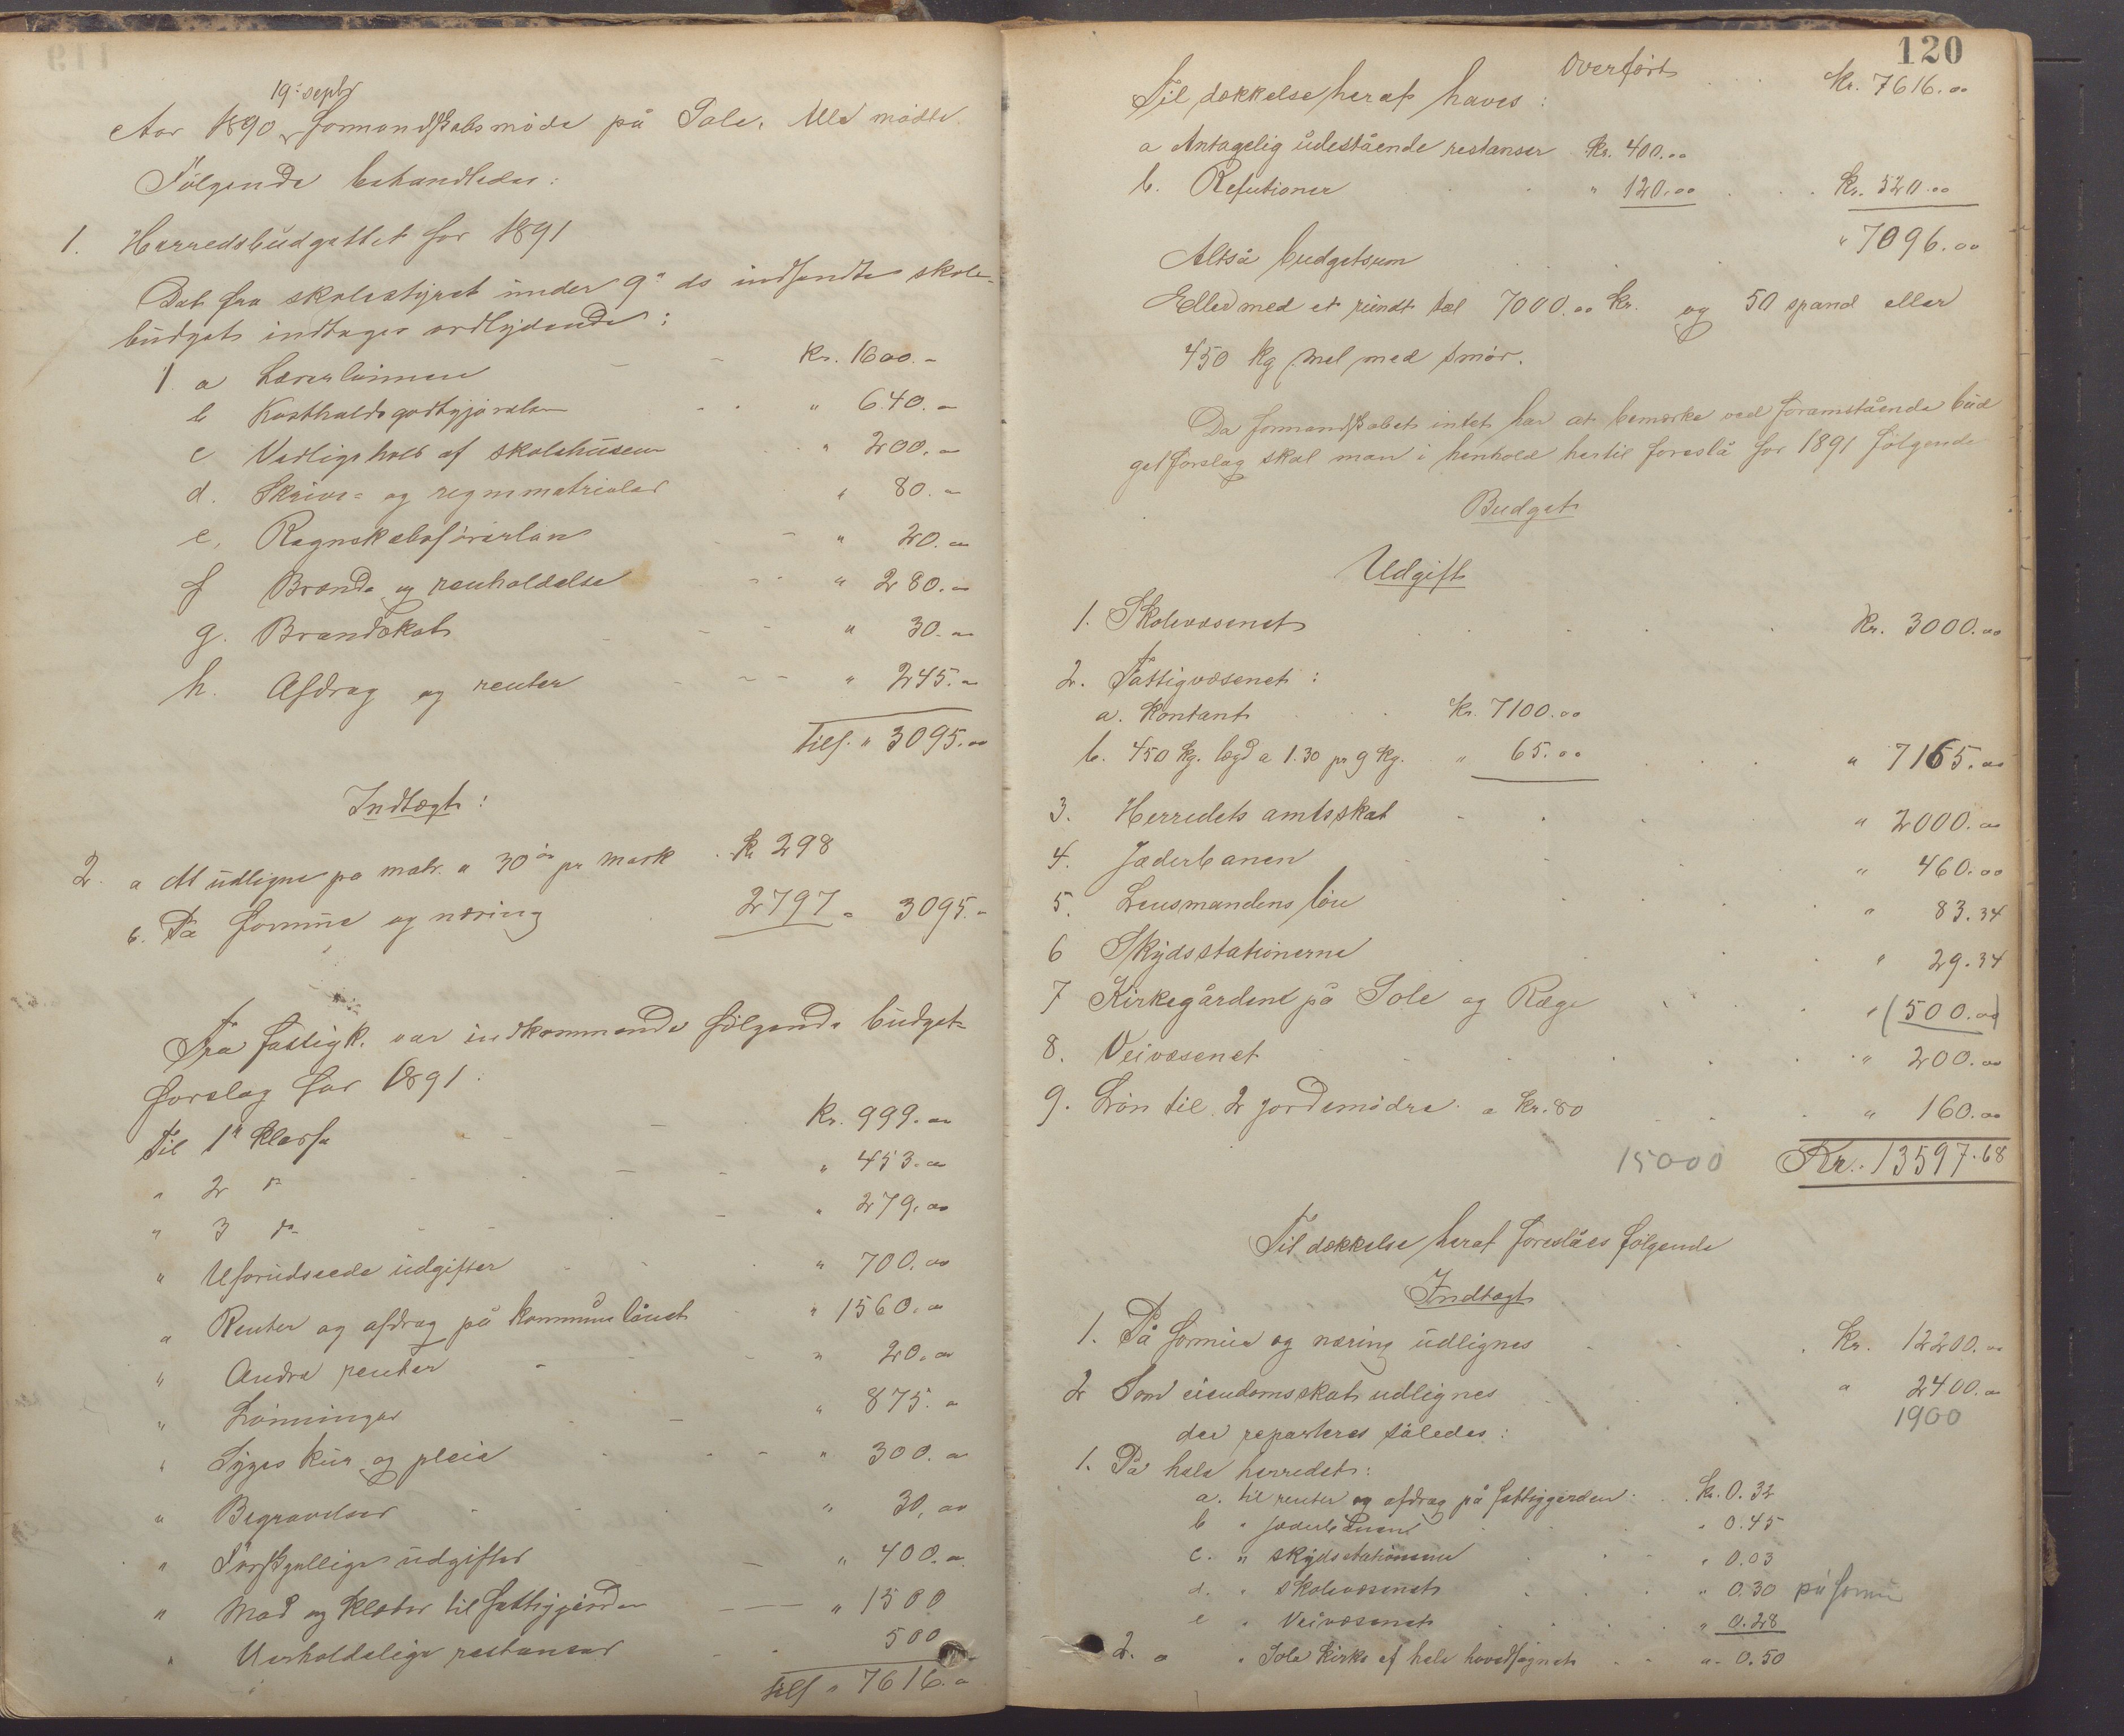 19. septbr
Aar 1890 formandskabsmöde på Sole. Alle mödte.
Fölgende behandledes:
1. Herredsbudgettet for 1891
Det fra skolestyret under 9" ds indsendte skole-
budget indtages ordlydende:
1 a Lærerlönnen - - Kr. 1600.-
b Kostholdsgodtgjörelse - - " 640.-
c Vedligehold af skolehusene - " 200.-
d. Skrive- og regnematrialer " 80.-
e. Regnskabsförerlön - - " 20.-
f Brænde og renholdelse - - " 280.-
g. Brandskat - - - " 30.-
h. Afdrag og renter - - - " 245.-
Tils. " 3095.00
Indtægt:
2. a At udligne på matr. a 30 ör pr mark . Kr 298
b. På formue og næring 2797 - 3095.-
Fra fattigk. var indkommende fölgende budget-
forslag for 1891:
Til 1" Klasse - - - Kr. 999.00
" 2 ds - - - " 453.00
" 3 ds - - - " 279.00
" Uforudseede udgifter " 700.00
" Renter og afdrag på kommunelånet " 1560.00
" Andre renter - - " 20.00
" Lönninger - " 875.00
" Syges kur og pleie - - " 300.00
" Begravelser " 30.00
" Forskjellige udgifter - " 400.00
" Mad og Klæder til fattiggården - - - " 1500
" Uerholdelige restanser 500
Tils " 7616.00
120
Overfört . . Kr. 7616.00
Til dækkelse heraf haves:
a Antagelig udestående restanser Kr. 400.00
b. Refutioner . . " 120.00 . . Kr. 520.00
Altså budgetsum . . . " 7096.00
Eller med et rundt tal 7000.00 kr. og 50 spand eller
450 kg mel med smör.
Da formandskabet intet har at bemærke ved foranstående bud
getforslag skal man i henhold hertil foreslå for 1891 fölgende
Budget
Udgift
1. Skolevæsenet . . . . Kr. 3000.00
2. Fattigvæsenet:
a. Kontant . . Kr. 7100.00
b. 450 kg. lægd a 1.30 pr 9 kg. " 65.00 . . . " 7165.00
3. Herredets amtsskat . . . " 2000.00
4. Jæderbanen . . . " 460.00
5. Lensmandens lön . . . " 83.34
6 Skydsstationerne . . . " 29.34
7 Kirkegårdene på Sole og Ræge . . . " (500.00)
8. Veivæsenet . . . . " 200.00
9. Lön til 2 jordemödre a Kr. 80 . . . " 160.00
15000 Kr. 13597.68
Til dækkelse heraf foreslåes fölgende
Indtægt
1. På formue og næring udlignes . . . Kr. 12200.00
2 Som eiendomsskat udlignes . . " 2400.00
1900
der reparteres således:
1. På hele herredet:
a. til renter og afdrag på fattiggården: . Kr. 0.32
b " Jæderbanen . . . " 0.45
c. " skydsstationerne . . . " 0.03
d. " skolevæsenet . . . " 0.30 på formue
e " Veivæsenet . . . " 0.28
2. a " Sole Kirke af hele hovedsognet . . " 0.50